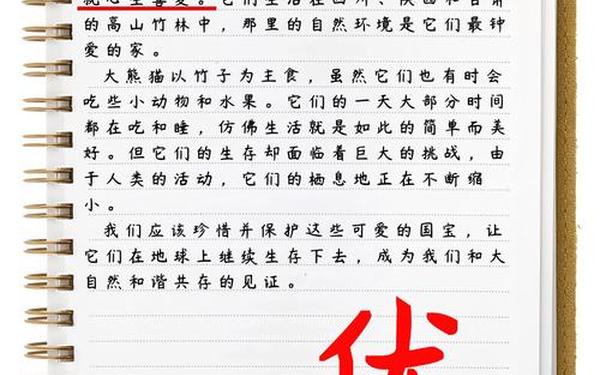 就心生喜爱。它们生活在四川、陕西和甘肃
的高山竹林中，那里的自然环境是它们最钟
爱的家。
大熊猫以竹子为主食，虽然它们也有时会
吃些小动物和水果。它们的一天大部分时间
都在吃和睡，仿佛生活就是如此的简单而美
好。但它们的生存却面临着巨大的挑战，由
于人类的活动，它们的栖息地正在不断缩
小。
我们应该珍惜并保护这些可爱的国宝，让
它们在地球上继续生存下去，成为我们和大
自然和谐共存的见证。
优